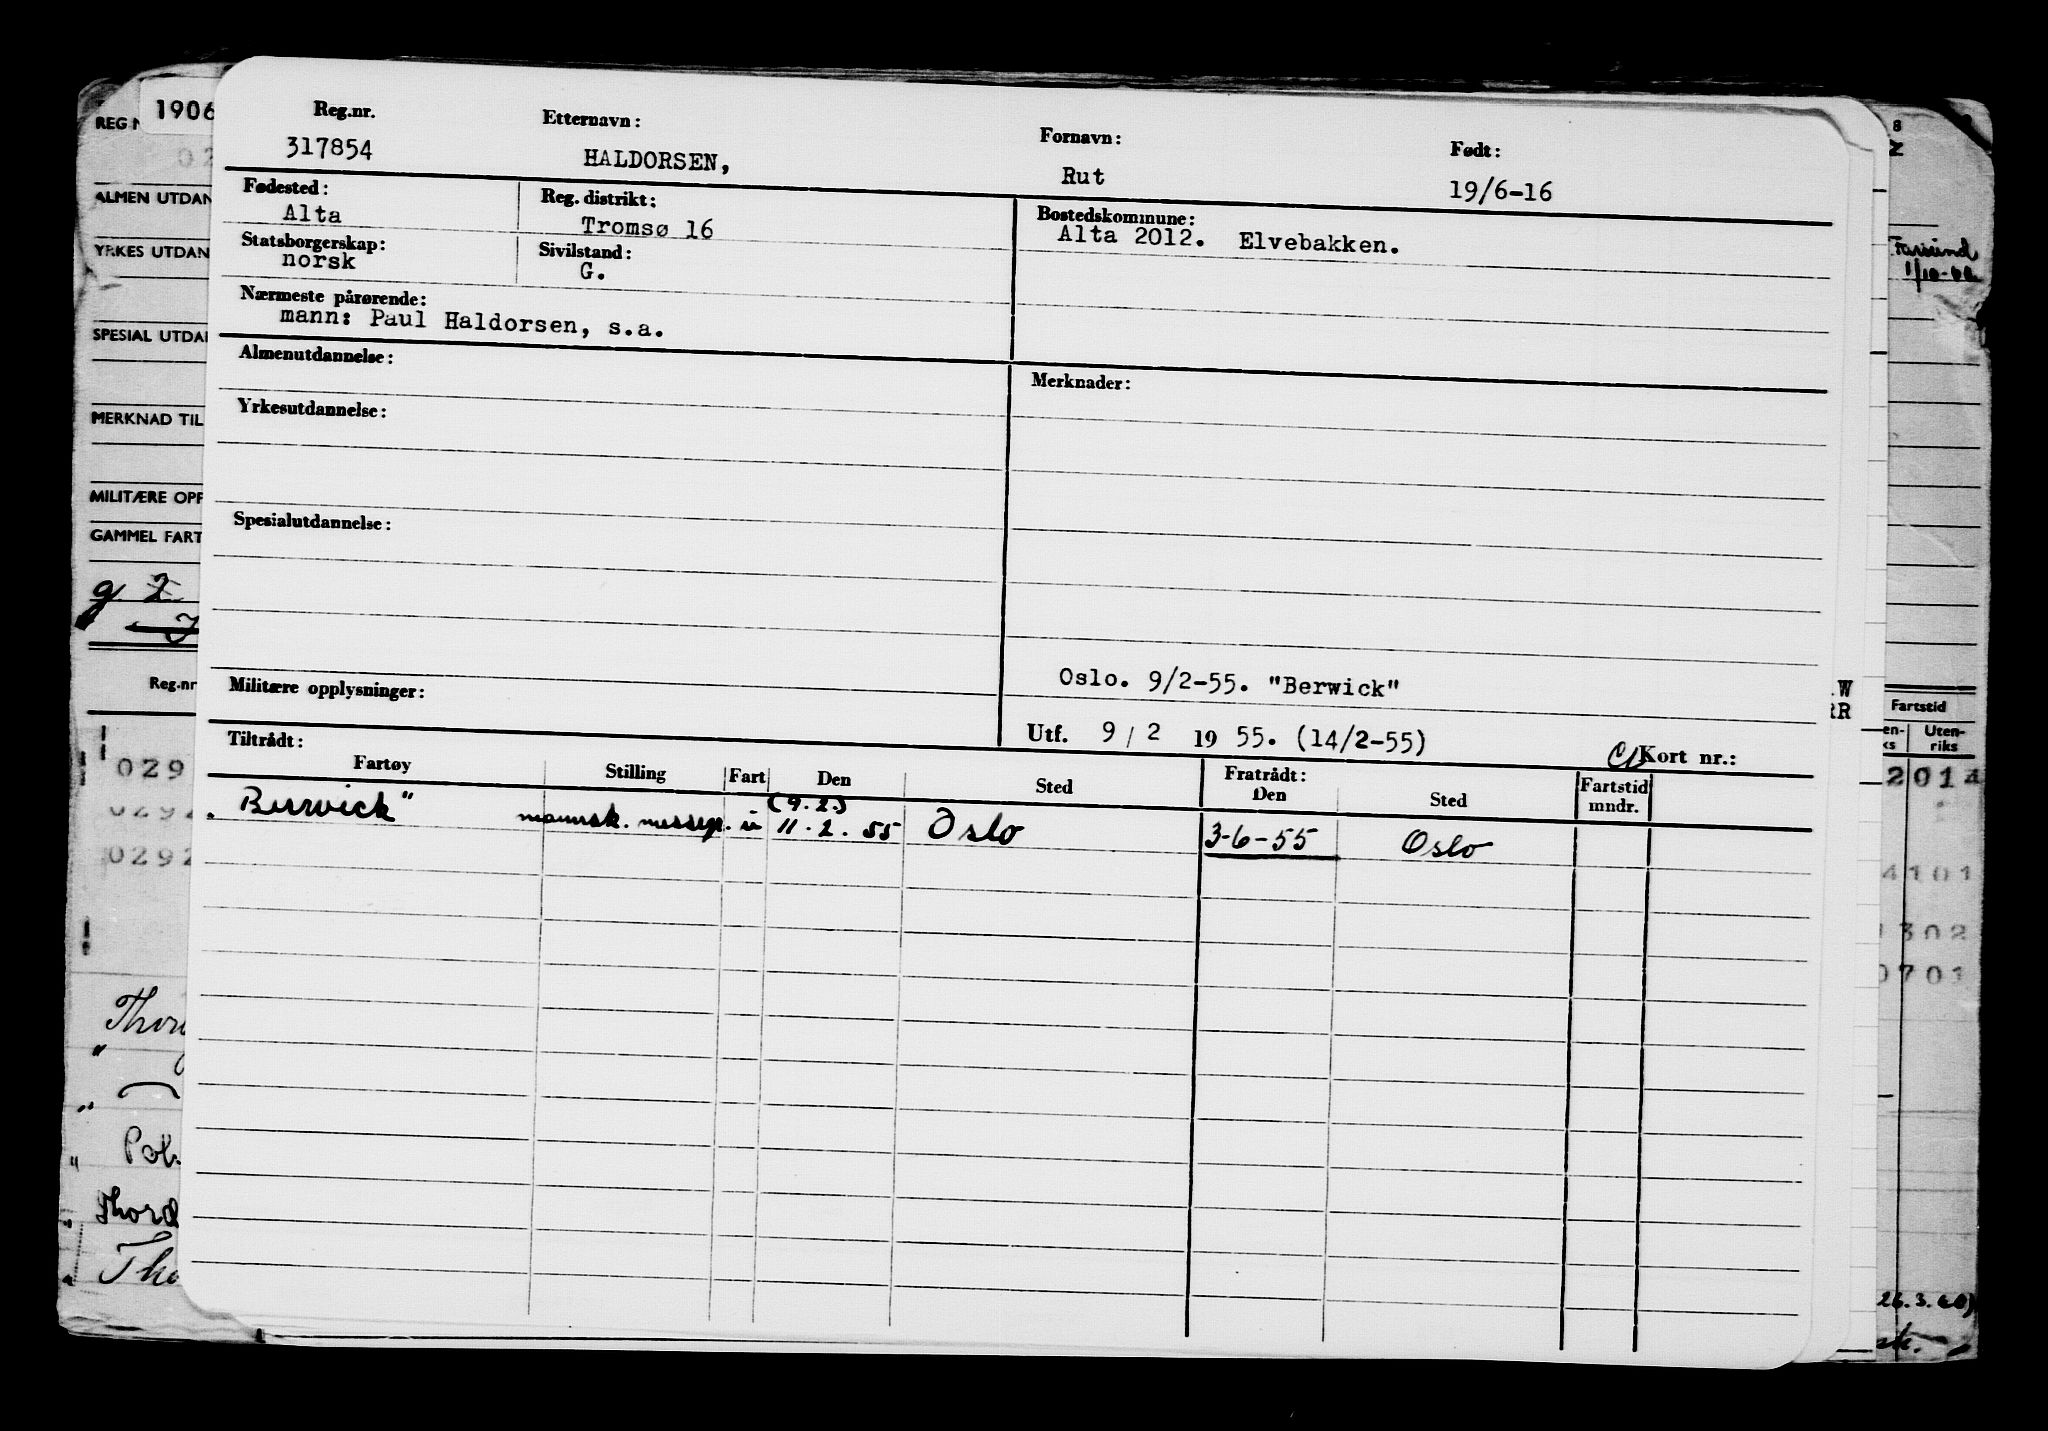 1906
REG N
ALMEN UTDAN
YRKES UTDAN
SPESIAL UTDAN
MERKNAD TIL
MILITÆRE OPP
GAMMEL FART
g 2
Reg.nr
029
0292
0292
Pot.
Thord
Reg.nr. Etternavn: Fornavn: Født:
317854 HALDORSEN, Rut 19/6-16
Fødested: Reg. distrikt: Bostedskommune:
Alta Tromsø 16 Alta 2012. Elvebakken.
Statsborgerskap: Sivilstand:
norsk G.
Nærmeste pårørende:
mann: Paul Haldorsen, s.a.
Almenutdannelse: Merknader:
Yrkesutdannelse:
Spesialutdannelse:
Oslo. 9/2-55. "Berwick"
Militære opplysninger:
Utf. 9 / 2 19 55. (14/2-55)
Tiltrådt: Fratrådt: Kort nr.:
Fartøy Stilling Fart Den Sted Den Sted Fartstid mndr.
(9.2.)
„Berwick" mannsk. messep. u 11.2.55 Oslo 3-6-55 Oslo
8
1/10-66
W
RR
Fartstid
en-
ks
Uten-
riks
2014
4101
1302
0701
26.3.60)